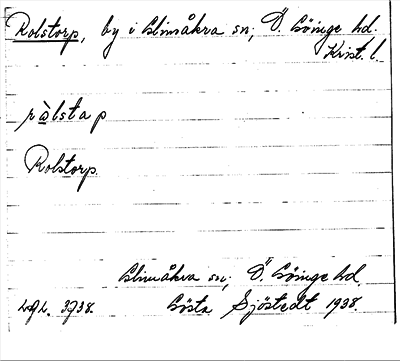 Rolstorp, by i Glimåkra sn; Ö. Göinge hd.
Krist. l.
ràlstap
Rolstorp.
Glimåkra sn; Ö. Göinge hd.
Gösta Sjöstedt 1938.